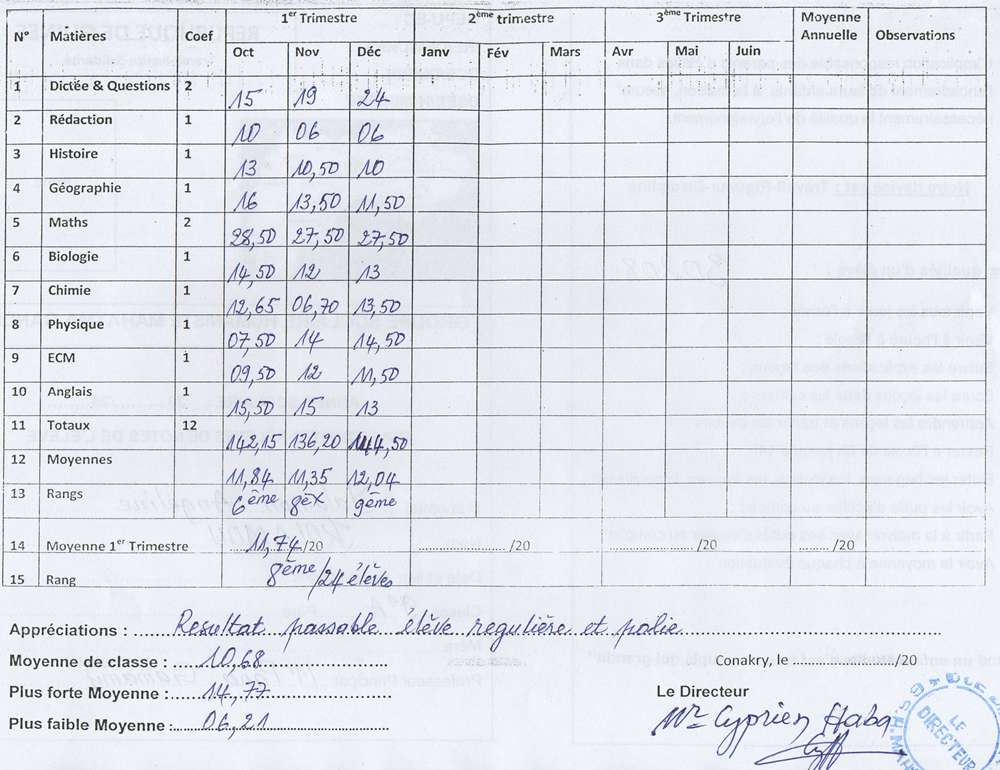 1er Trimestre 2ème trimestre 3ème Trimestre Moyenne Annuelle Observations
N° Matières Coef Oct Nov Déc Janv Fév Mars Avr Mai Juin
1 Dictée & Questions 2 15 19 24
2 Rédaction 1 10 06 06
3 Histoire 1 13 10,50 10
4 Géographie 1 16 13,50 11,50
5 Maths 2 28,50 27,50 27,50
6 Biologie 1 14,50 12 13
7 Chimie 1 12,65 06,70 13,50
8 Physique 1 07,50 14 14,50
9 ECM 1 09,50 12 11,50
10 Anglais 1 15,50 15 13
11 Totaux 12 142,15 136,20 144,50
12 Moyennes 11,84 11,35 12,04
13 Rangs 6ème 8ex 9ème
14 Moyenne 1er Trimestre 11,74/20 /20 /20 /20
15 Rang 8ème/24 élèves
Appréciations : Resultat passable élève regulière et polie
Moyenne de classe : 10,68
Conakry, le /20
Plus forte Moyenne : 14,77
Le Directeur
Plus faible Moyenne : 06,21
Mr Cyprien Haba
LE DIRECTEUR